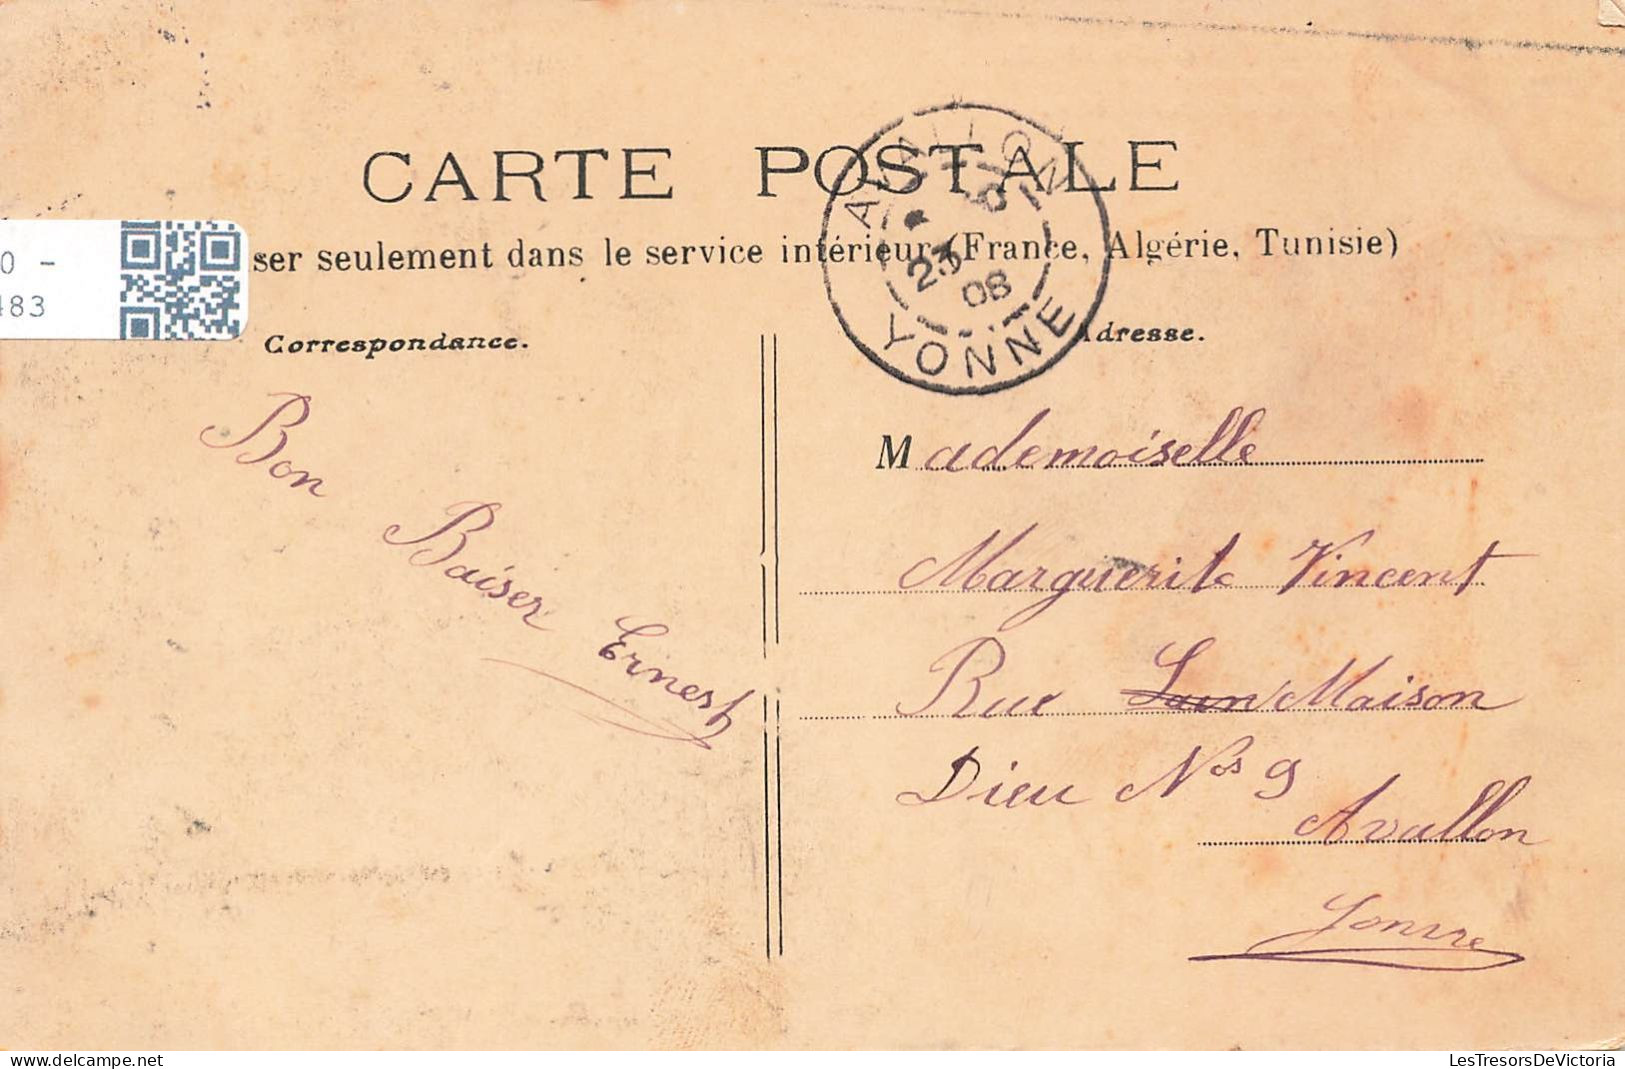 CARTE POSTALE
ser seulement dans le service intérieur (France, Algérie, Tunisie)
AVALLON
23
08
YONNE
0 -
483
Correspondance.
Adresse.
Bon
Baiser
Ernest
Mademoiselle
Marguerite Vincent
Rue Maison
Dieu Nos 9
Avallon
Yonne
delcampe.net
LesTresorsDeVictoria